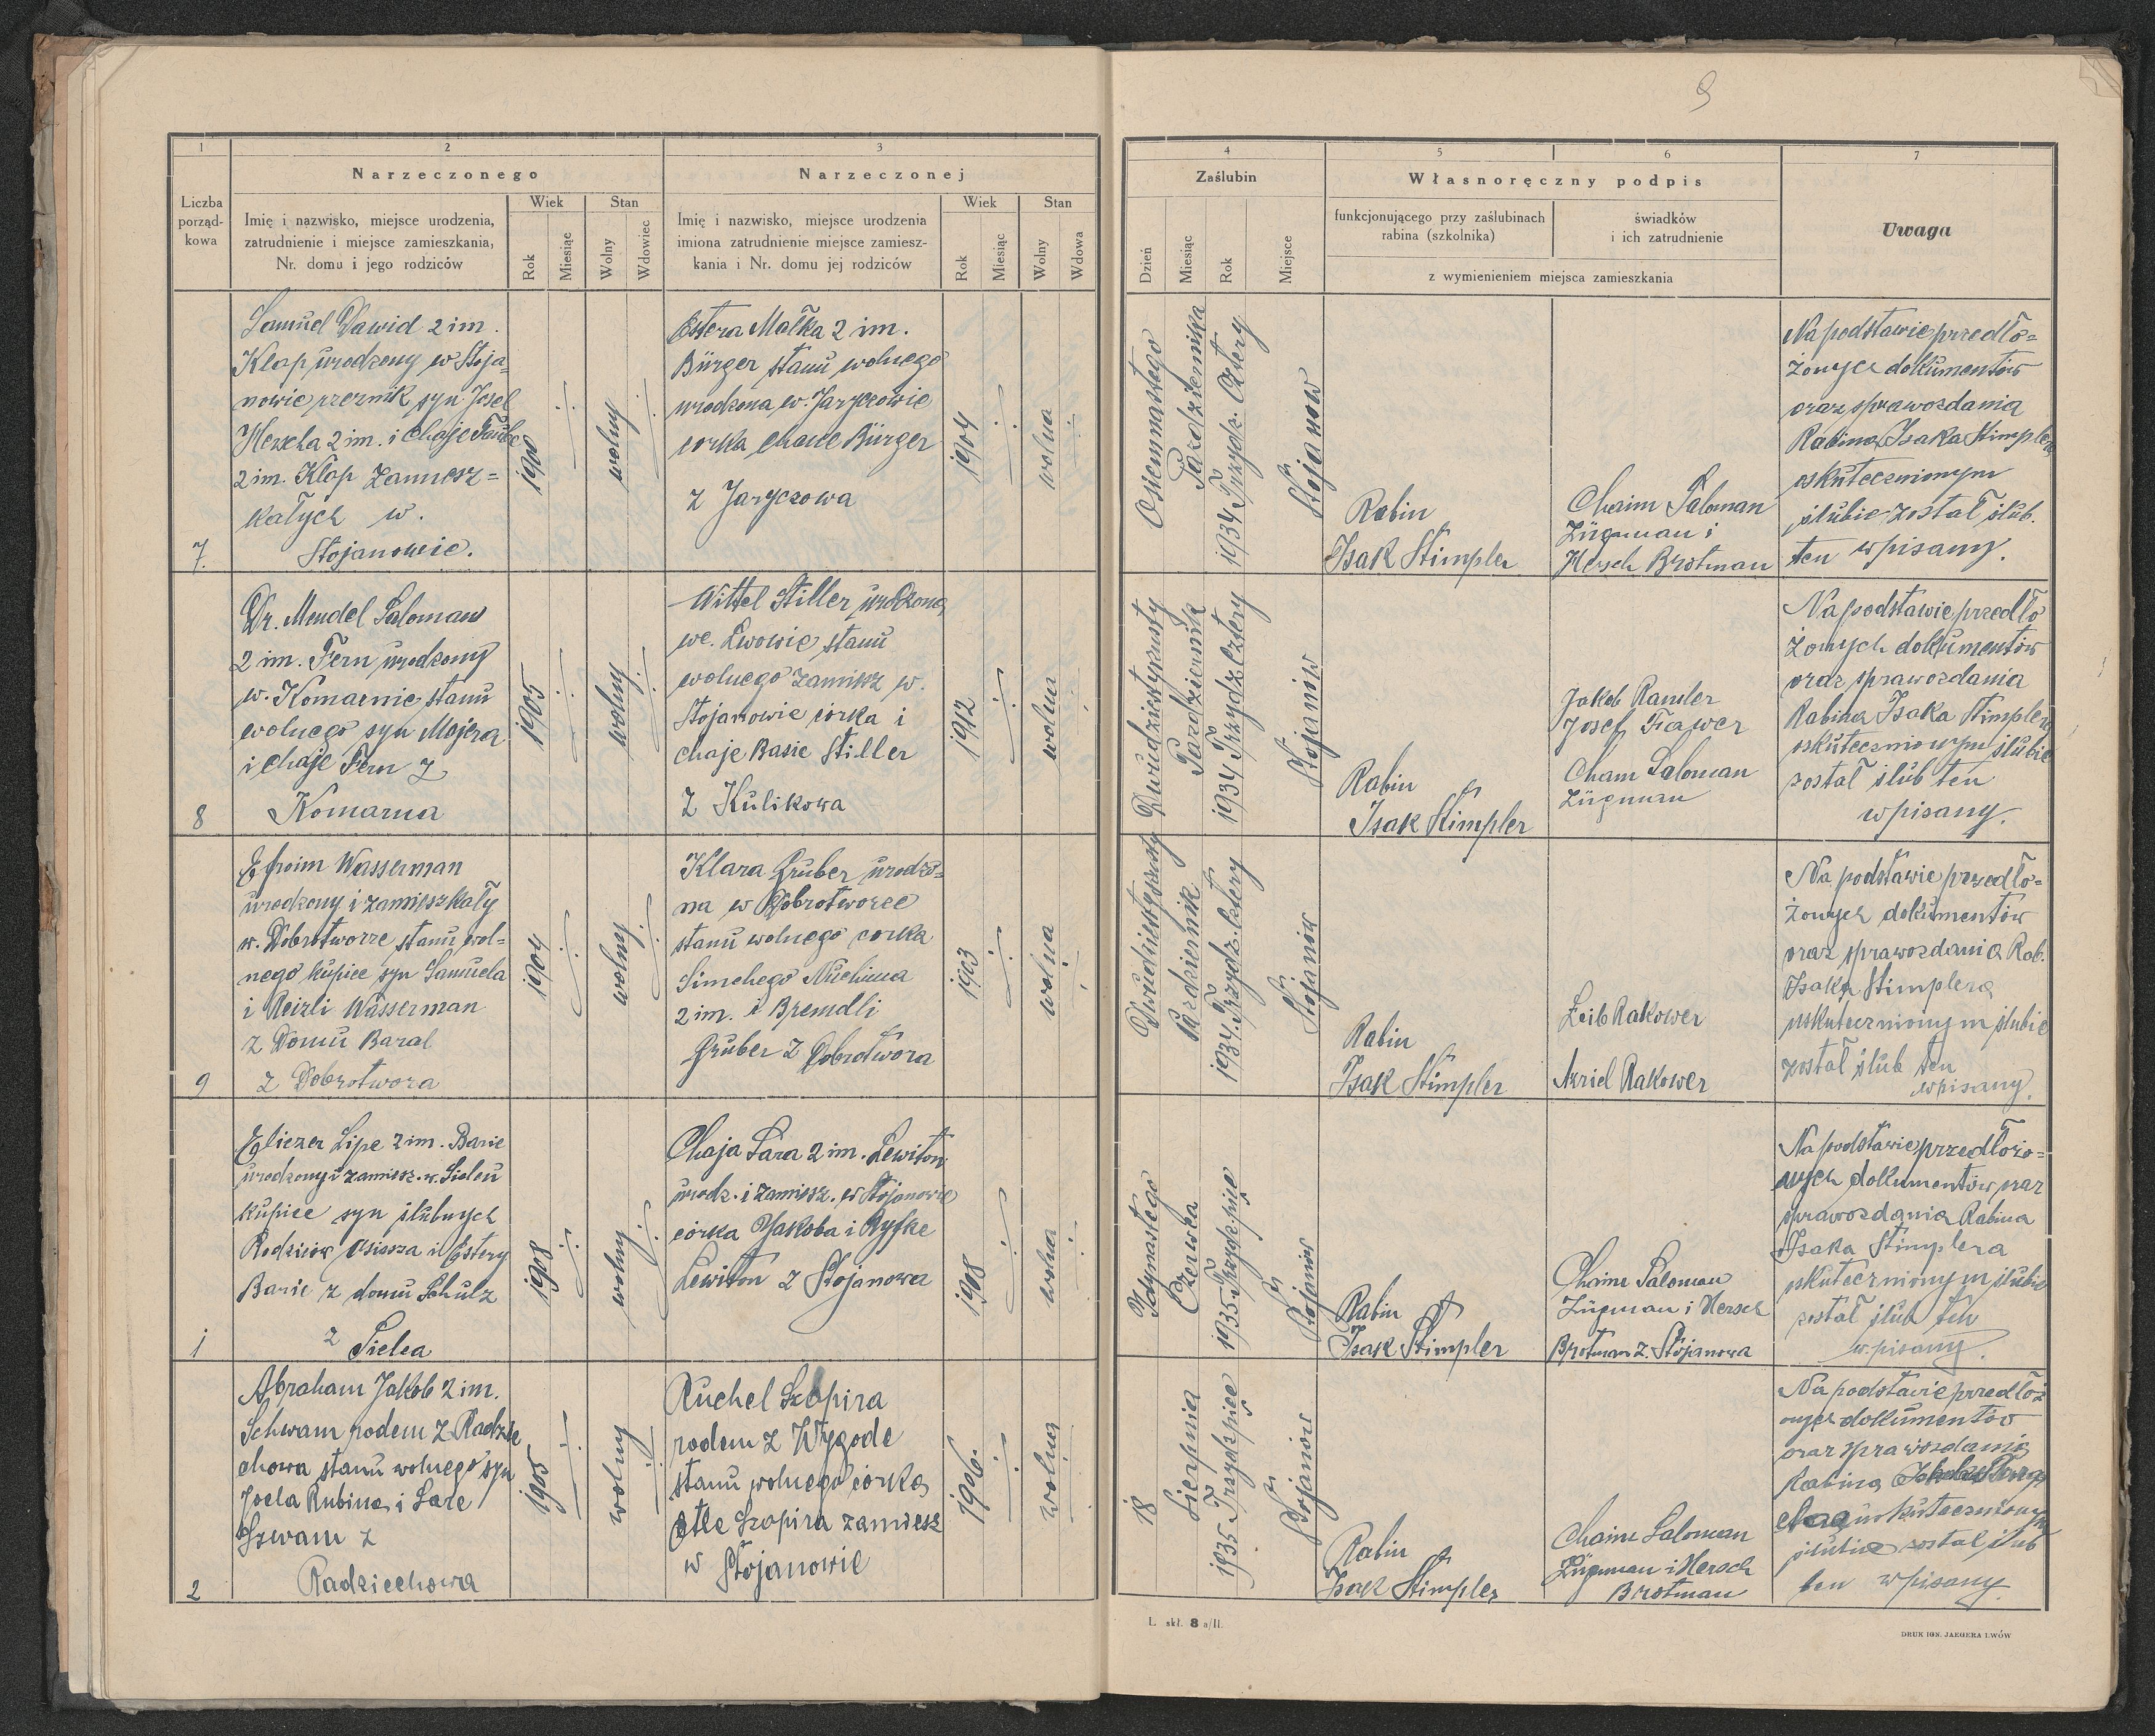 9
1
2
3
Narzeczonego
Narzeczonej
Liczba
porząd-
kowa
Imię i nazwisko, miejsce urodzenia,
zatrudnienie i miejsce zamieszkania,
Nr. domu i jego rodziców
Wiek
Rok
Miesiąc
Stan
Wolny
Wdowiec
Imię i nazwisko, miejsce urodzenia
imiona zatrudnienie miejsce zamiesz-
kania i Nr. domu jej rodziców
Wiek
Rok
Miesiąc
Stan
Wolny
Wdowa
4
5
6
7
Zaślubin
Własnoręczny podpis
Uwaga
Dzień
Miesiąc
Rok
Miejsce
funkcjonującego przy zaślubinach
rabina (szkolnika)
świadków
i ich zatrudnienie
z wymienieniem miejsca zamieszkania
7.
Samuel Dawid 2 im.
Klap urodzony w Stoja-
nowie syn Josel
Herscha 2 im. i Chaje Taube
2 im. Klap Zamiesz=
kałych w.
Stojanowie.
1900
wolny
Estera Małka 2 im.
Bürger stanu wolnego
urodzona w. Jaryczowie
corka Chane Bürger
z Jaryczowa
1904
wolna
Osiemnastego
Pazdziernika
1934 Trzydz. Cztery
Stojanow
Rabin
Isak Stimpler
Chaim Saloman
Zügman i
Hersch Brotman
Na podstawie przedło=
żonych dokumentów
oraz sprawozdania
Rabina Isaka Stimplera
uskutecznionym
ślubie został ślub.
ten wpisany.
8
Dr. Mendel Saloman
2 im. Fern urodzony
w. Komarnie stanu
wolnego syn Majera
i Chaje Fern z
Komarna
1905
wolny
Wittel Stiller urodzona
we. Lwowie stanu
wolnego zamisz w.
Stojanowie córka i
Chaje Basie Stiller
z Kulikowa
1912
wolna
Pazdziernik
1934 Trzydz Cztery
Stojanów
Rabin
Isak Stimpler
Jakob Ramler
Josef Frawer
Cham Saloman
Zügman
Na podstawie przedło
żonych dokumentów
oraz sprawozdania
Rabina Isaka Stimplera
uskutecznionym ślubie
został ślub ten
wpisany.
9
Efroim Wasserman
urodzony i zamieszkały
w. Dobrotworze stanu wol=
nego kupiec syn Samuela
i Reizli Wasserman
z Domu Baral
z Dobrotwora
1904
wolny
Klara Gruber urodzo=
na w Dobrotworze
stanu wolnego corka
Simchego Nuchima
2 im. i Brendli
Gruber z Dobrotwora
1903
wolna
Pazdziernik
1934. Trzydz. Cztery
Stojanów
Rabin
Isak Stimpler
Leib Rakower
Azriel Rakower
Na podstawie przedło=
żonych dokumentów
oraz sprawozdania Rab.
Isaka Stimplera
uskutecznionym ślubie
został ślub ten
wpisany.
1
Eliezer Lipe 2 im. Barie
urodzony i zamiesz. w. Sielcu
kupiec syn ślubnych
Rodziców i Estery
Barie z domu Schulz
z Sielca
1908
wolny
Chaja Sara 2 im. Lewiton
urodz. i zamisz. w Stojanowie
córka Jakoba i Ryfke
Lewiton z Stojanowa
1908
wolna
Jedynastego
Czerwca
1935 Trzydz. pięć
Stojanów
Rabin
Isak Stimpler
Chaim Saloman
Zügman i Hersch
Brotman z. Stojanowa
Na podstawie przedłożo=
nych dokumentów oraz
sprawozdania Rabina
Isaka Stimplera
uskutecznionym ślubie
został ślub ten
wpisany.
2
Abraham Jakob 2 im.
Schwam rodem z Radzie
chowa stanu wolnego syn
Joela Rubina i Sare
Szwam z
Radziechowa
1905
wolny
Ruchel Szapira
rodem z Wygode
stanu wolnego córka
Etle Szapira zamiesz
w Stojanowie
1906.
wolna
18
Sierpnia
1935 Trzydz pięc
Stojanów
Rabin
Isak Stimpler
Chaim Saloman
Zügman i Hersch
Brotman
Na podstawie przedłoż
onych dokumentów
oraz sprawozdania
Rabina
uskutecznionym
ślubie został ślub
ten wpisany.
L. skł. 8 a/II.
DRUK IGN. JAEGERA LWÓW